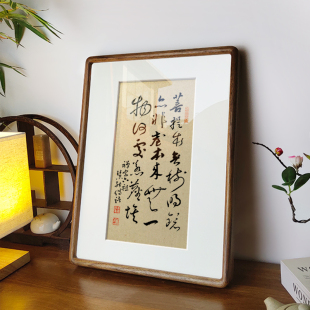 菩提本无树明镜
亦非台本来無一
物何处惹尘埃